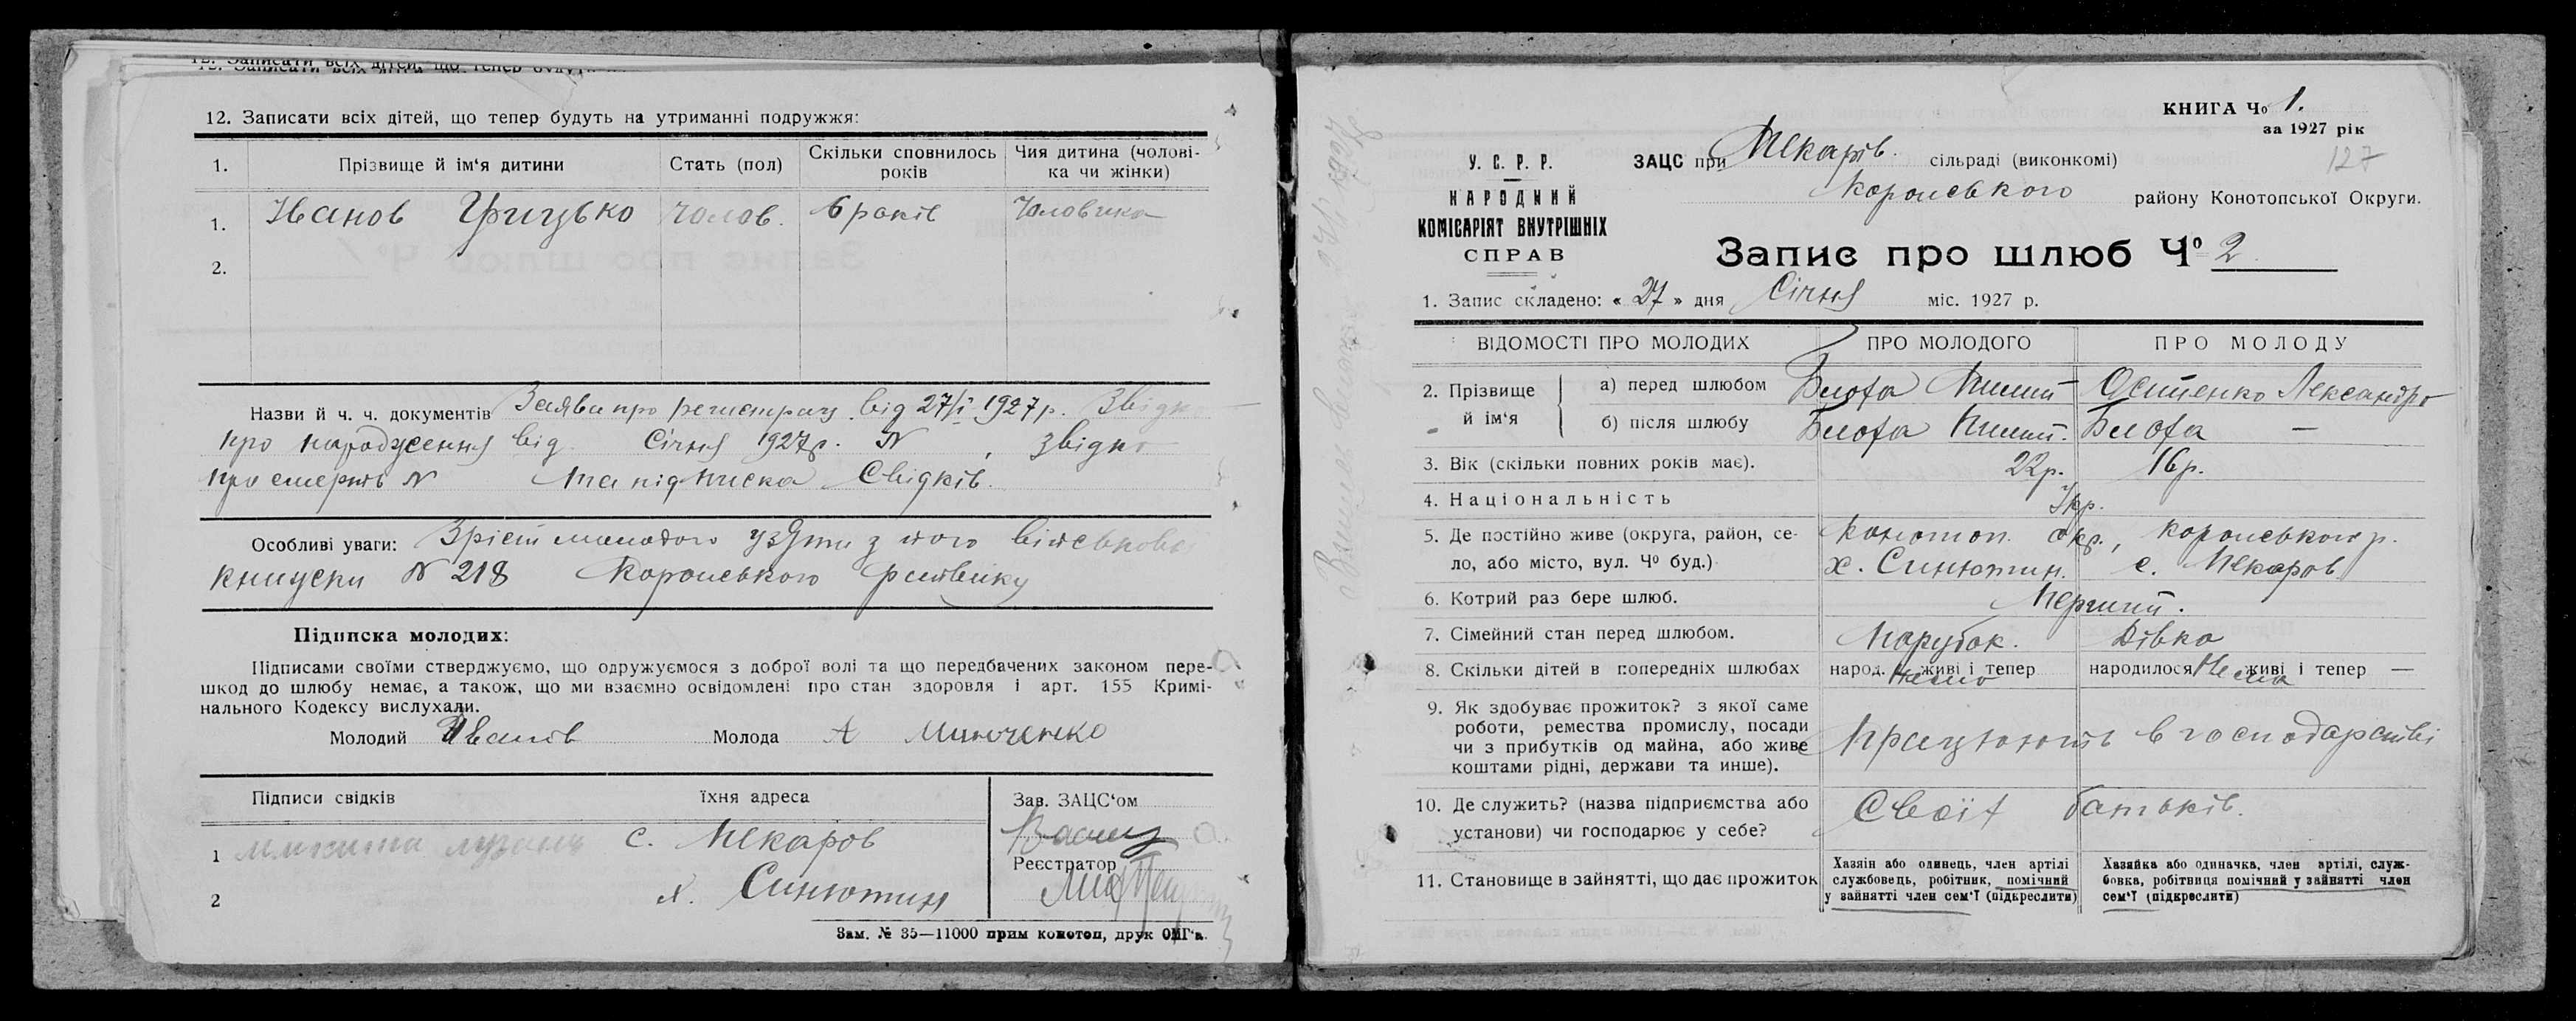 12. Записати всіх дітей, що тепер будуть на утриманні подружжя:
1. Прізвище й ім'я дитини Стать (пол) Скільки сповнилось років Чия дитина (чоловіка чи жінки)
1. Іванов Грицько чолов. 6 років Чоловіка
2.
Назви й ч. ч. документів Заява про регистрацу від 27/І 1927 р.
про народження від Січня 1927 р. N , звідко
про смерть N та підписка Свідків.
Особливі уваги: Зріст молодого узяти з його
книжки N 218 Коропського
Підписка молодих:
Підписами своїми стверджуємо, що одружуємося з доброї волі та що передбачених законом пере-
шкод до шлюбу немає, а також, що ми взаємно освідомлені про стан здоровля і арт. 155 Кримі-
нального Кодексу вислухали.
Молодий Іванов Молода А
Підписи свідків їхня адреса Зав. ЗАЦС'ом
1 с. Пекаров
Реєстратор
2 х. Синютин
Зам. № 35—11000 прим конотоп, друк ОМГ'а.
КНИГА Чо 1.
за 1927 рік
127
У. С. Р. Р.
НАРОДНИЙ
КОМІСАРІЯТ ВНУТРІШНІХ
СПРАВ
ЗАЦС при Пекарів. сільраді (виконкомі)
Коропського району Конотопської Округи.
Запис про шлюб Чо 2
1. Запис складено: « 27 » дня Січня міс. 1927 р.
ВІДОМОСТІ ПРО МОЛОДИХ ПРО МОЛОДОГО ПРО МОЛОДУ
2. Прізвище й ім'я
а) перед шлюбом Блоха Пилип Лександра
б) після шлюбу Блоха Пилип. Блоха —
3. Вік (скільки повних років має). 22р. 16р.
4. Національність Укр.
5. Де постійно живе (округа, район, се-
ло, або місто, вул. Чо буд.) Конотоп. окр., Коропського р.
х. Синютин. с. Пекаров
6. Котрий раз бере шлюб. Перший.
7. Сімейний стан перед шлюбом. Парубок. Дівка
8. Скільки дітей в попередніх шлюбах народ. живі і тепер нема народилося Нема живі і тепер —
9. Як здобуває прожиток? з якої саме
роботи, ремества промислу, посади
чи з прибутків од майна, або живе
коштами рідні, держави та инше). Працюють в господарстві
10. Де служить? (назва підприємства або
установи) чи господарює у себе? Своїх батьків.
11. Становище в зайнятті, що дає прожиток
Хазяін або одинець, член артілі
службовець, робітник, помічний
у зайнятті член сем'ї (підкреслити)
Хазяйка або одиначка, член артілі, служ-
бовка, робітниця помічний у зайнятті член
сем'ї (підкреслити)